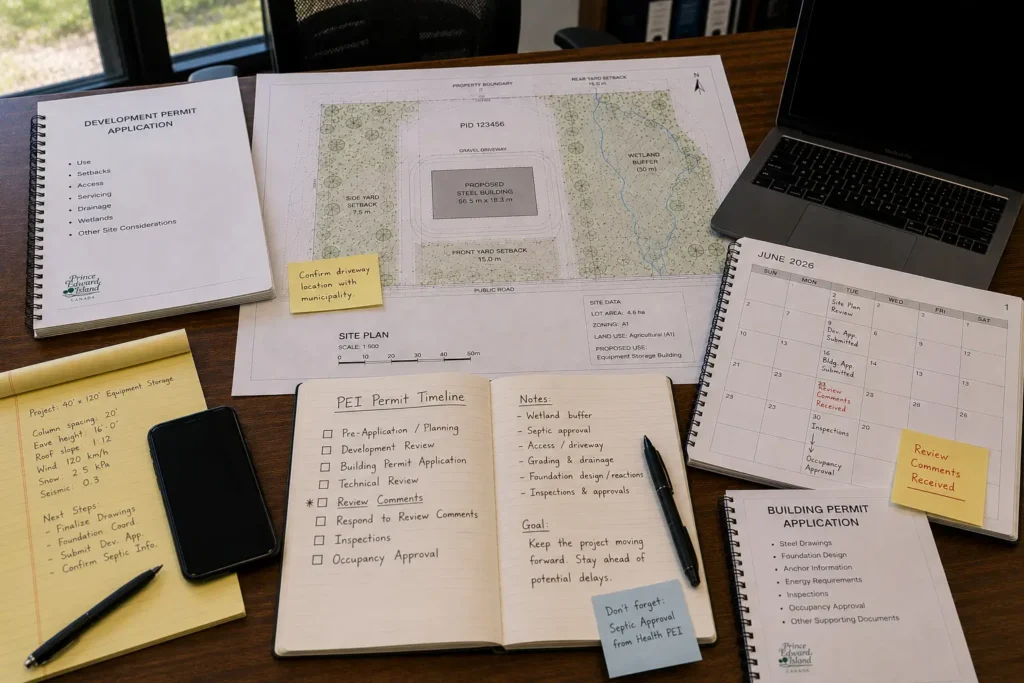 DEVELOPMENT PERMIT
APPLICATION
• Use
• Setbacks
• Access
• Servicing
• Drainage
• Wetlands
• Other Site Considerations
Prince
Edward
Island
CANADA
PROPERTY BOUNDARY
REAR YARD SETBACK
15.0 m
N
PID 123456
GRAVEL DRIVEWAY
PROPOSED
STEEL BUILDING
56.5 m x 18.3 m
WETLAND
BUFFER
(30 m)
SIDE YARD
SETBACK
7.5 m
FRONT YARD SETBACK
15.0 m
PUBLIC ROAD
Confirm driveway
location with
municipality.
SITE PLAN
SCALE: 1:500
0 10 20 30 40 50m
SITE DATA
LOT AREA: 4.6 ha
ZONING: A1
LAND USE: Agricultural (A1)
PROPOSED USE:
Equipment Storage Building
JUNE 2026
1
SUN MON TUE WED FRI SAT
2 2 2 2 1
Site Plan
Review
10 7 9 6 9 12
Dev. App.
Submitted
21 21 16 14 13 13
Bldg. App.
Submitted
22 23 23 28 28 25
Review
Comments
Received
30 20
Inspections
↓
Occupancy
Approval
Review
Comments
Received
Project: 40' x 120' Equipment Storage
Column spacing: 20'
Eave height: 16'-0"
Roof slope 1:12
Wind: 120 km/h
Snow: 2.5 kPa
Seismic: 0.3
Next Steps:
- Finalize Drawings
- Foundation Coord
- Submit Dev. App.
- Confirm Septic Info.
PEI Permit Timeline
☐ Pre-Application / Planning
☐ Development Review
☐ Building Permit Application
☐ Technical Review
* ☐ Review Comments
☐ Respond to Review Comments
☐ Inspections
☐ Occupancy Approval
Notes:
- Wetland buffer
- Septic approval
- Access / driveway
- Grading & drainage
- Foundation design / reactions
- Inspections & approvals
Goal:
Keep the project moving
forward. Stay ahead of
potential delays.
Don't forget:
Septic Approval
from Health PEI
BUILDING PERMIT
APPLICATION
• Steel Drawings
• Foundation Design
• Anchor Information
• Energy Requirements
• Inspections
• Occupancy Approval
• Other Supporting Documents
Prince
Edward
Island
CANADA